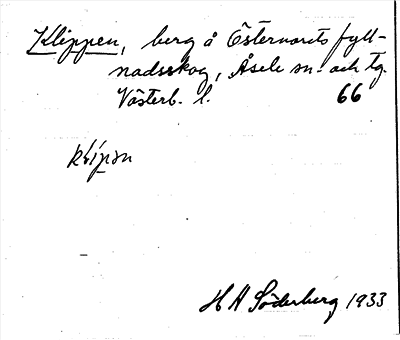 Klippen, berg å Östernorets fyll-
nadsskog, Åsele sn. och tg.
Västerb. l. 66
H A Söderberg 1933